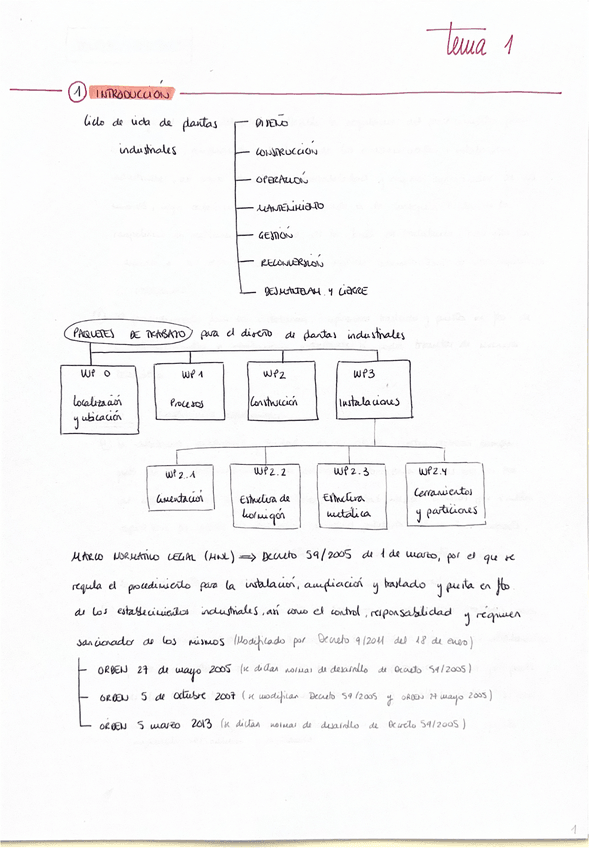 tema 1
1 INTRODUCCIÓN
Ciclo de vida de plantas
industriales
DISEÑO
CONSTRUCCIÓN
OPERACIÓN
MANTENIMIENTO
GESTIÓN
RECONVERSIÓN
DESMANTELAM. Y CIERRE
PAQUETES DE TRABAJO para el diseño de plantas industriales
WP 0
Localización
y ubicación
WP 1
Procesos
WP2
Construcción
WP3
Instalaciones
WP2.1
Cimentación
WP2.2
Estructura de
hormigón
WP2.3
Estructura
metálica
WP2.4
Cerramientos
y particiones
MARCO NORMATIVO LEGAL (MNL) ⇒ Decreto 59/2005 de 1 de marzo, por el que se
regula el procedimiento para la instalación, ampliación y traslado y puesta en fto
de los establecimientos industriales, así como el control, responsabilidad y régimen
sancionador de los mismos (Modificado por Decreto 9/2011 del 18 de enero)
ORDEN 27 de mayo 2005 (se dictan normas de desarrollo de Decreto 59/2005)
ORDEN 5 de octubre 2007 (se modifican Decreto 59/2005 y ORDEN 27 mayo 2005)
ORDEN 5 marzo 2013 (se dictan normas de desarrollo de Decreto 59/2005)
1